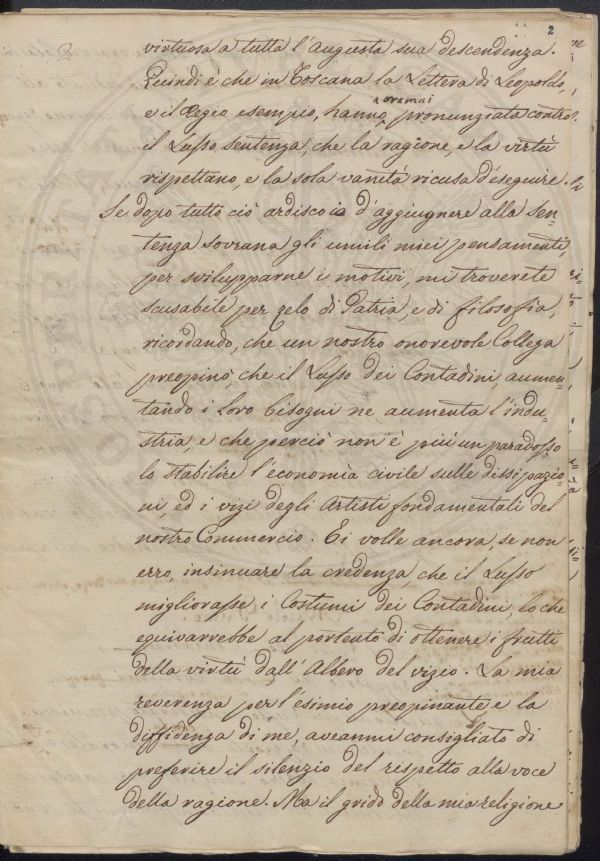 2
virtuosa a tutta l'augusta sua descendenza.
Quindi è che in Toscana la Lettera di Leopoldo,
e il Regio esempio, hanno oramai pronunziata contro
il Lusso sentenza, che la ragione, e la virtù
rispettano, e la sola vanità ricusa d'eseguire.
Se dopo tutto ciò ardisco io d'aggiugnere alla sen=
tenza sovrana gli umili miei pensamenti,
per svilupparne i motivi, mi troverete
scusabile per zelo di Patria, e di filosofia,
ricordando, che un nostro onorevole Collega
preopinò, che il Lusso dei Contadini, aumen=
tando i loro bisogni ne aumenta l'indu=
stria, e che perciò non è più un paradosso
lo stabilire l'economia civile sulle dissipazio=
ni, ed i vizi degli Artisti fondamentali del
nostro Commercio. Ei volle ancora, se non
erro, insinuare la credenza, che il Lusso
migliorasse i Costumi dei Contadini, lo che
equivarrebbe al portento di ottenere i frutti
della virtù dall'Albero del vizio. La mia
reverenza per l'esimio preopinante e la
diffidenza di me, aveanmi consigliato di
preferire il silenzio del rispetto alla voce
della ragione. Ma il grido della mia religione